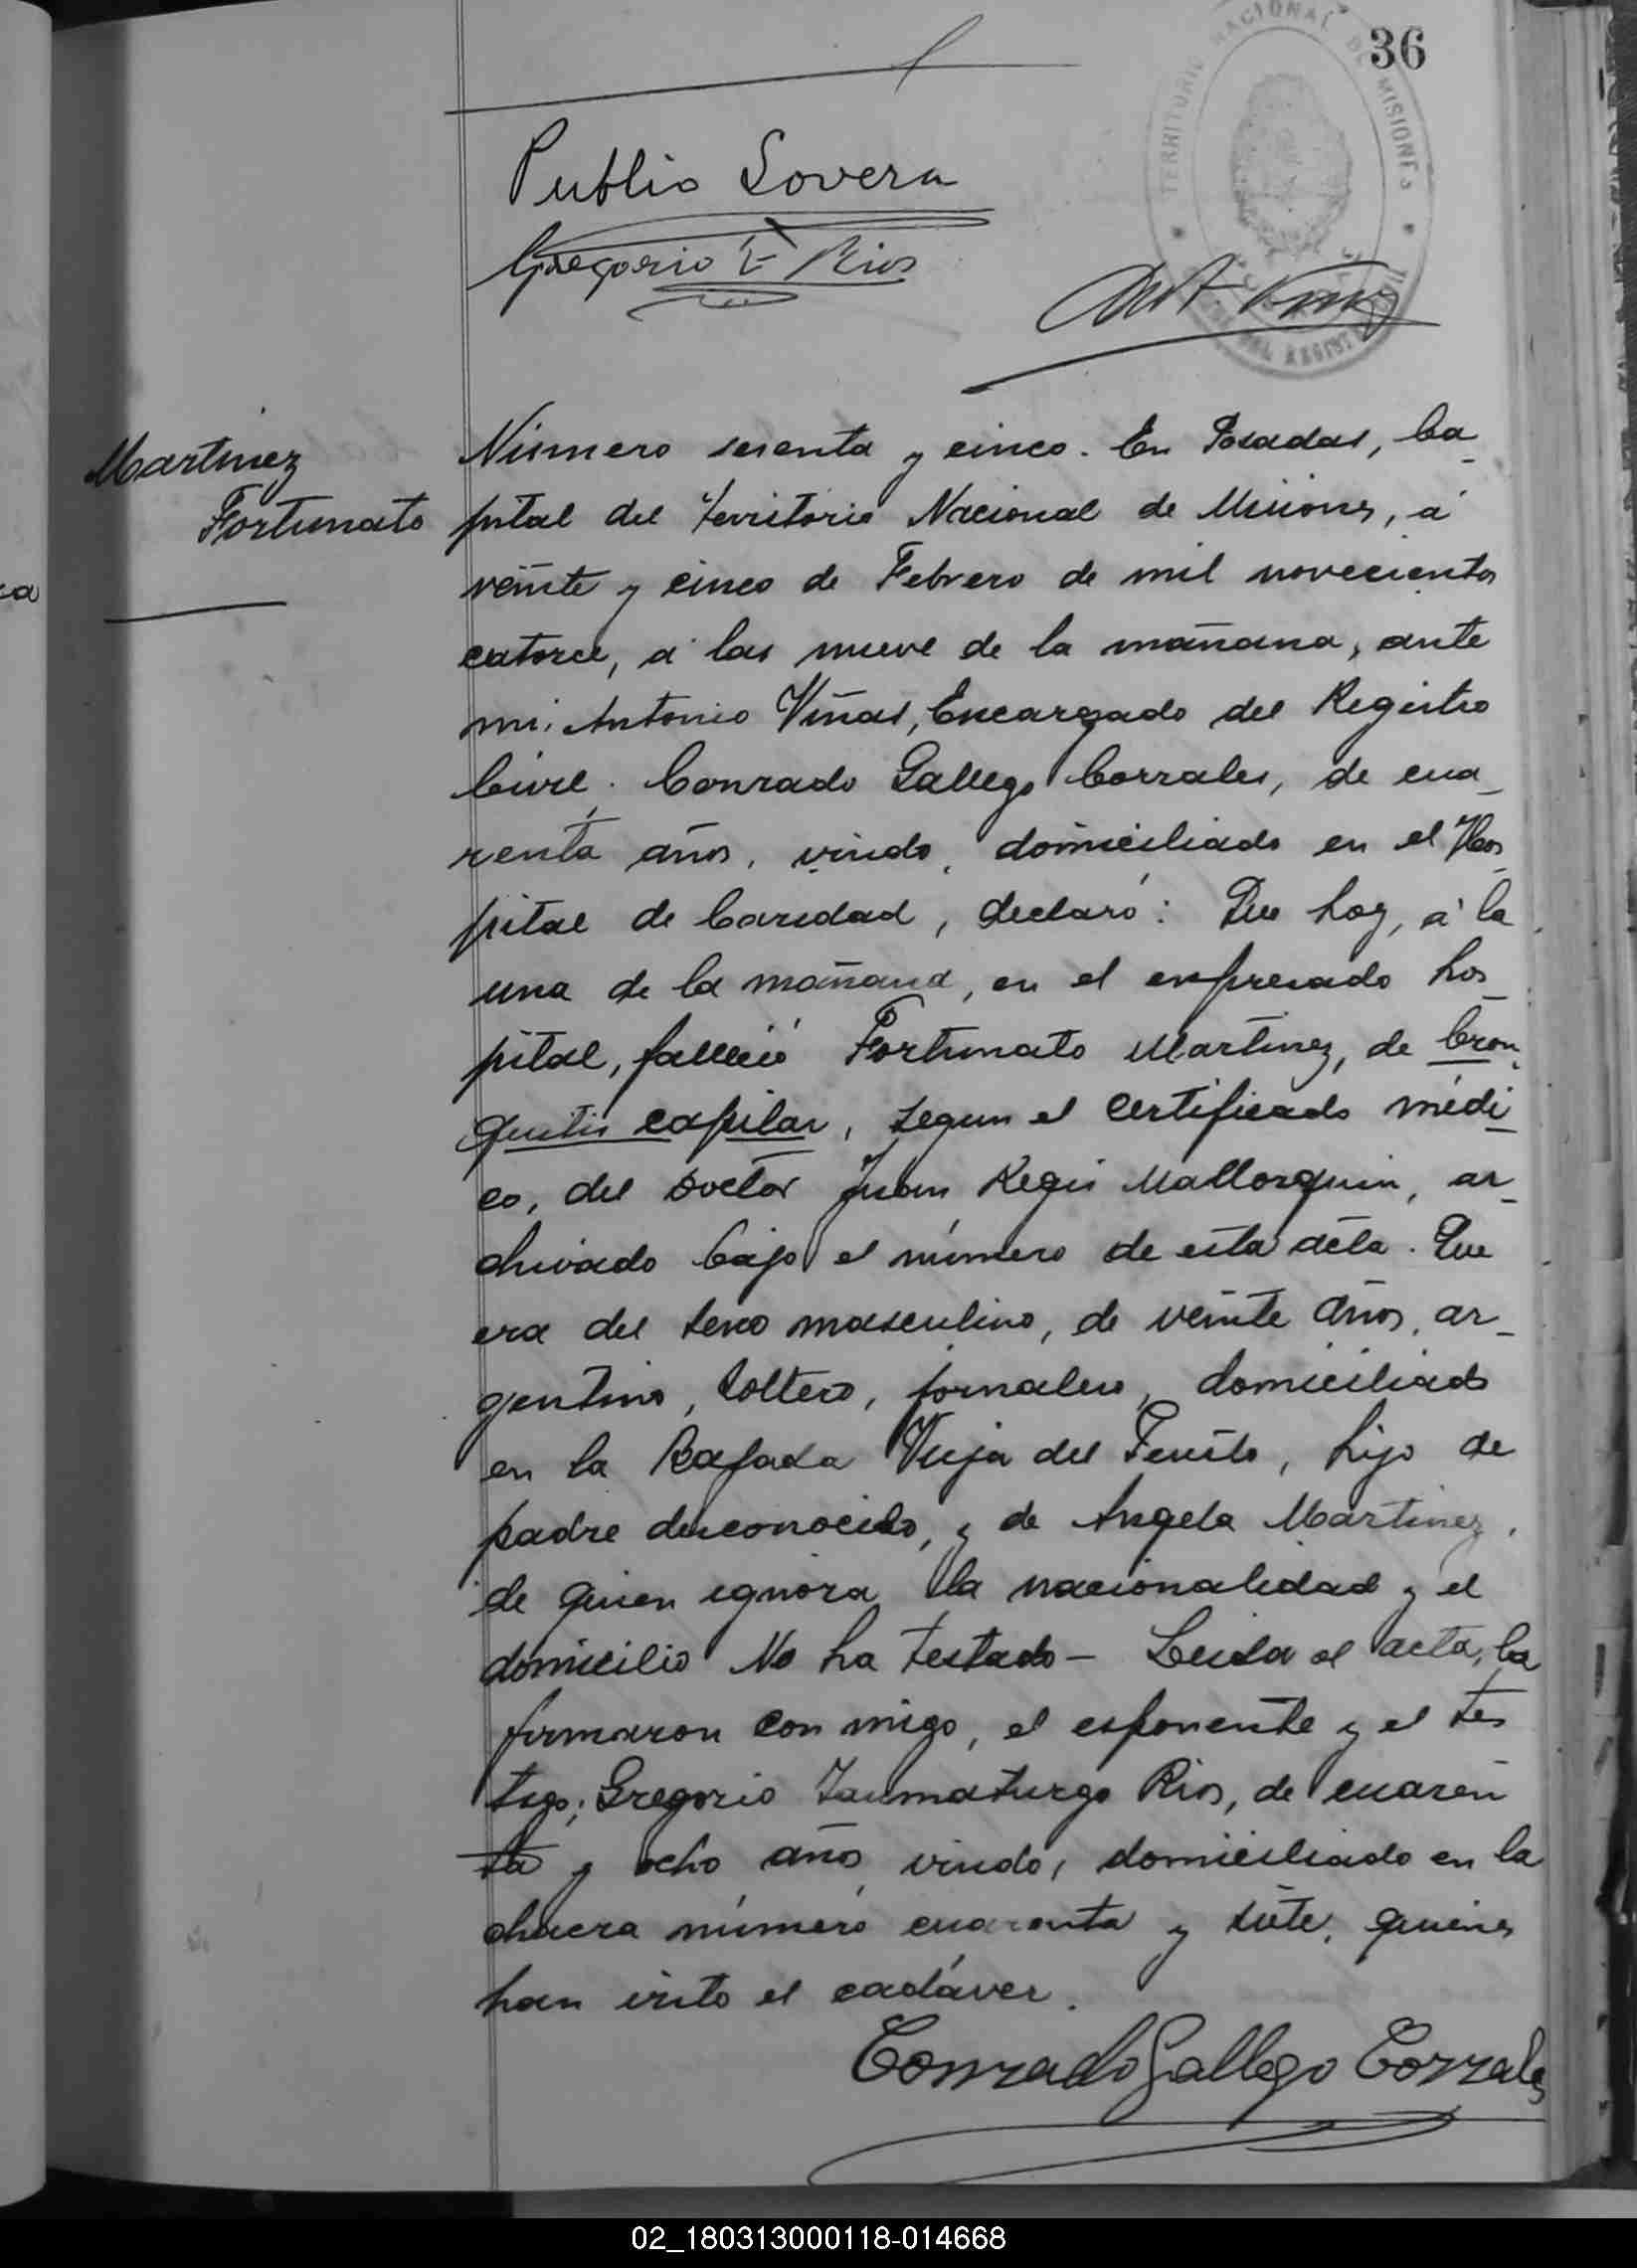 36
TERRITORIO NACIONAL DE MISIONES
Publio Lovera
Gregorio T Rios
Martinez
Fortunato
Número sesenta y cinco. En Posadas, Ca-
pital del Territorio Nacional de Misiones, á
veinte y cinco de Febrero de mil novecientos
catorce, á las nueve de la mañana, ante
mi, Antonio Viñas, Encargado del Registro
Civil. Conrado Gallego Corrales, de cua-
renta años, viudo, domiciliado en el Hos-
pital de Caridad, declaró: Que hoy, á la
una de la mañana, en el expresado hos-
pital, falleció Fortunato Martinez, de bron-
quitis capilar, segun el certificado médi-
co, del doctor Juan Regis Mallorquin, ar-
chivado bajo el número de esta acta. Que
era del sexo masculino, de veinte años, ar-
gentino, soltero, jornalero, domiciliado
en la Bajada Vieja del Puerto, hijo de
padre desconocido, y de Angela Martinez,
de quien ignora la nacionalidad y el
domicilio No ha testado - Leida el acta, la
firmaron con migo, el esponente y el tes
tigo; Gregorio Taumaturgo Rios, de cuaren
ta y ocho años viudo, domiciliado en la
chacra número cuarenta y siete, quienes
han visto el cadáver.
Conrado Gallego Corrales
02_180313000118-014668